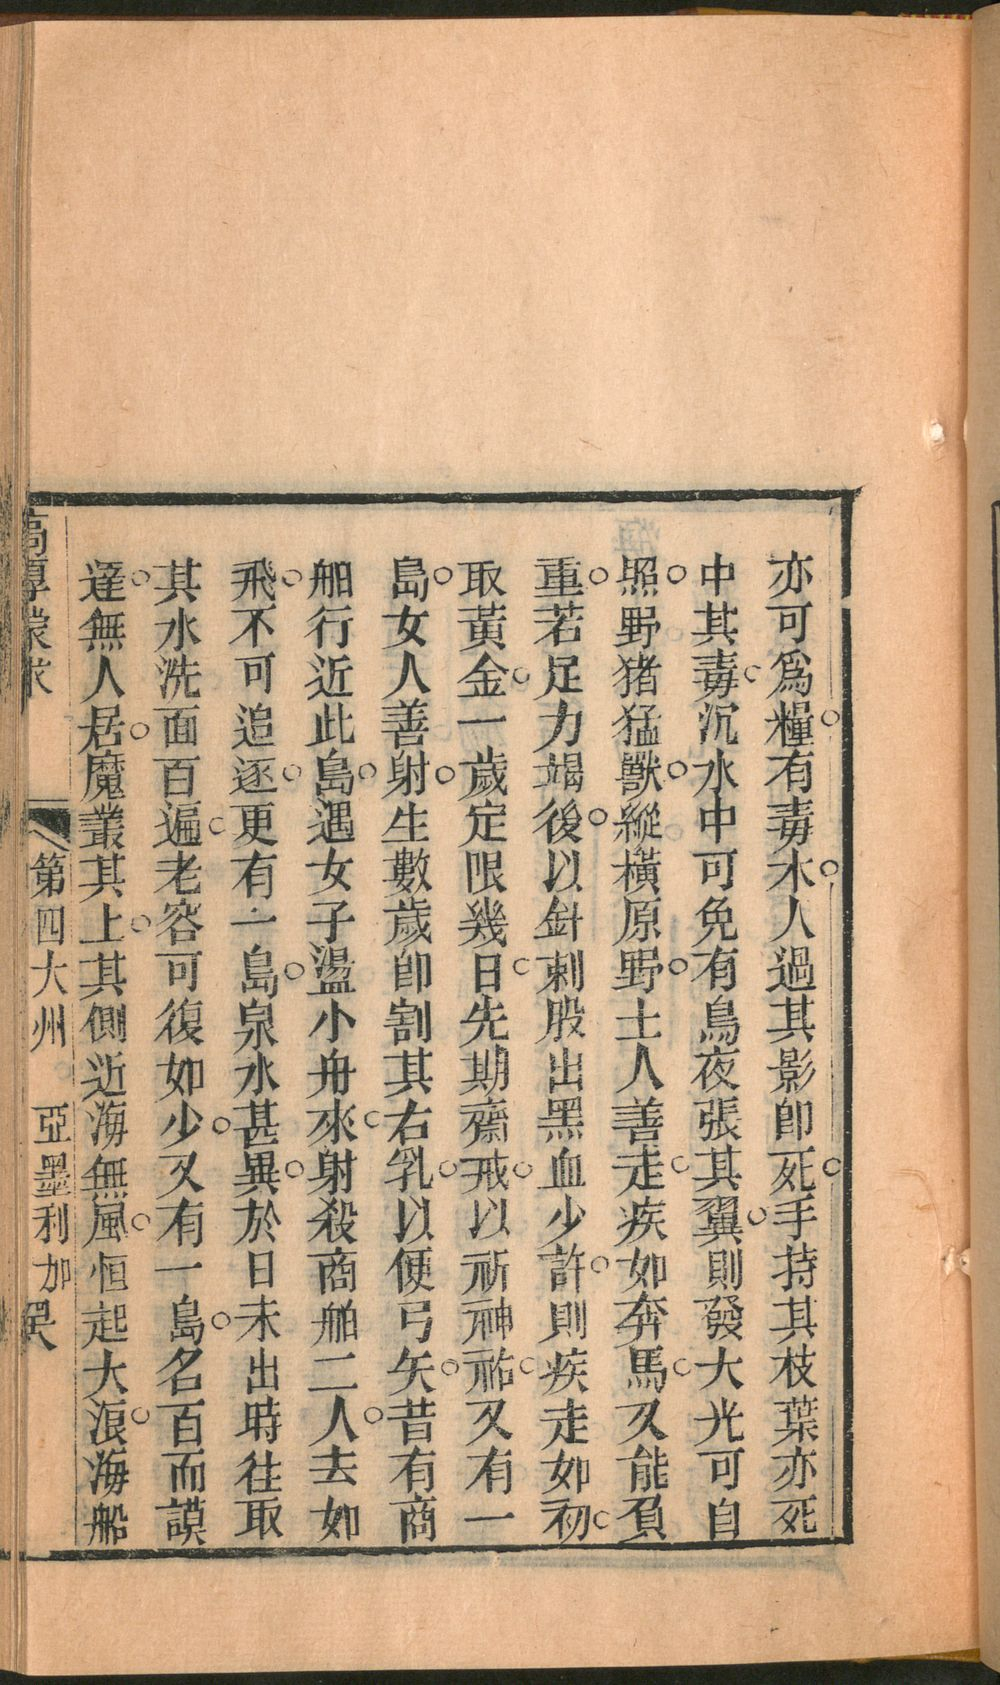 亦可爲糧○有毒木○人過其影卽死○手持其枝葉亦死
中其毒○沉水中可免有鳥夜張其翼○則發大光可自
照○野猪猛獸○縱橫原野○土人善走○疾如奔馬○又能負
重○若足力竭後○以針刺股出黑血少許○則疾走如初○
取黃金○一歲定限幾日○先期齋戒○以祈神祐○又有一
島○女人善射○生數歲卽割其右乳○以便弓矢○昔有商
舶行近此島○遇女子盪小舟來○射殺商舶二人○去如
飛○不可追逐○更有一島○泉水甚異○於日未出時往取
其水洗面百遍○老容可復如少○又有一島○名百而謨
達○無人居○魔叢其上○其側近海無風○恒起大浪○海船
高厚蒙求 第四大州 亞墨利加